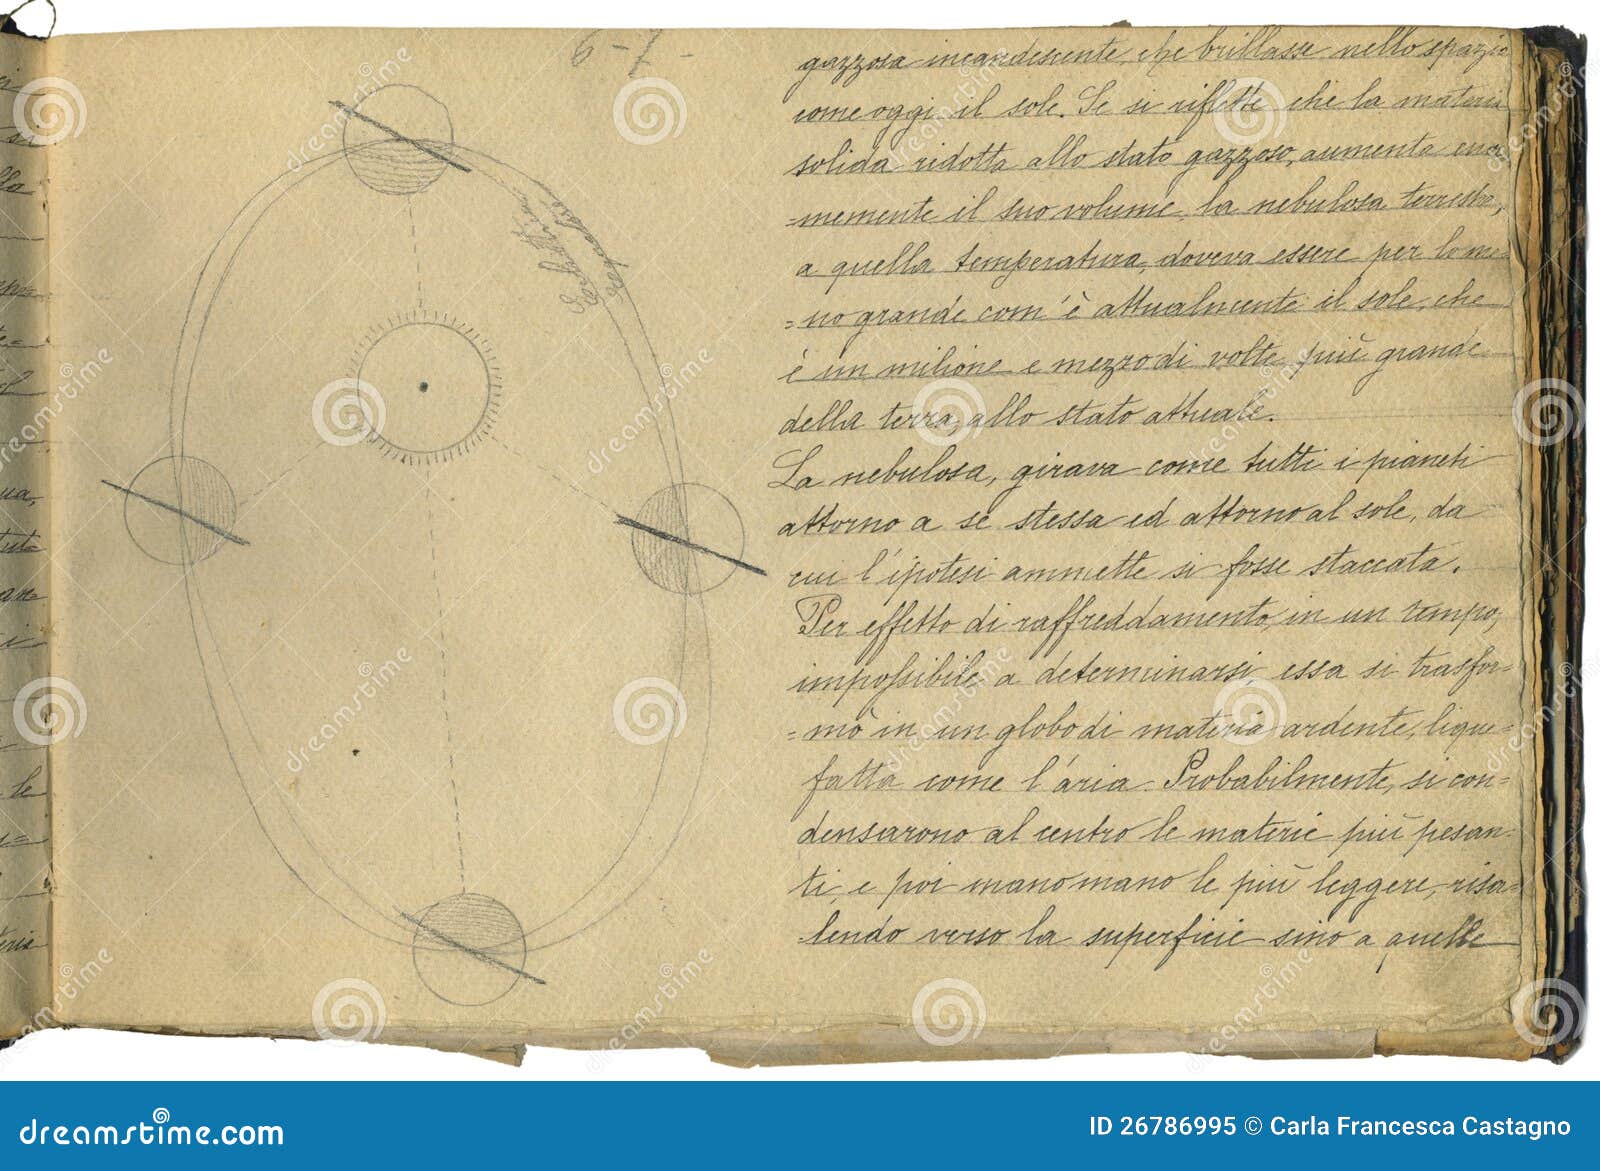 6-7-
gazzosa incandescente, che brillasse nello spazio
come oggi il sole. Se si riflette che la materia
solida ridotta allo stato gazzoso, aumenta enor
=memente il suo volume, la nebulosa terrestre,
a quella temperatura, doveva essere per lo me=
=no grande com'è attualmente il sole, che
è un milione e mezzo di volte più grande
della terra, allo stato attuale.
La nebulosa, girava come tutti i pianeti
attorno a se stessa ed attorno al sole, da
cui l'ipotesi ammette si fosse staccata.
Per effetto di raffreddamento, in un tempo,
impossibile a determinarsi, essa si trasfor=
=mò in un globo di materia ardente, lique=
fatta come l'aria. Probabilmente, si con=
densarono al centro le materie più pesan=
ti, e poi mano mano le più leggere, risa=
lendo verso la superficie sino a quelle
dreamstime.com
ID 26786995 © Carla Francesca Castagno